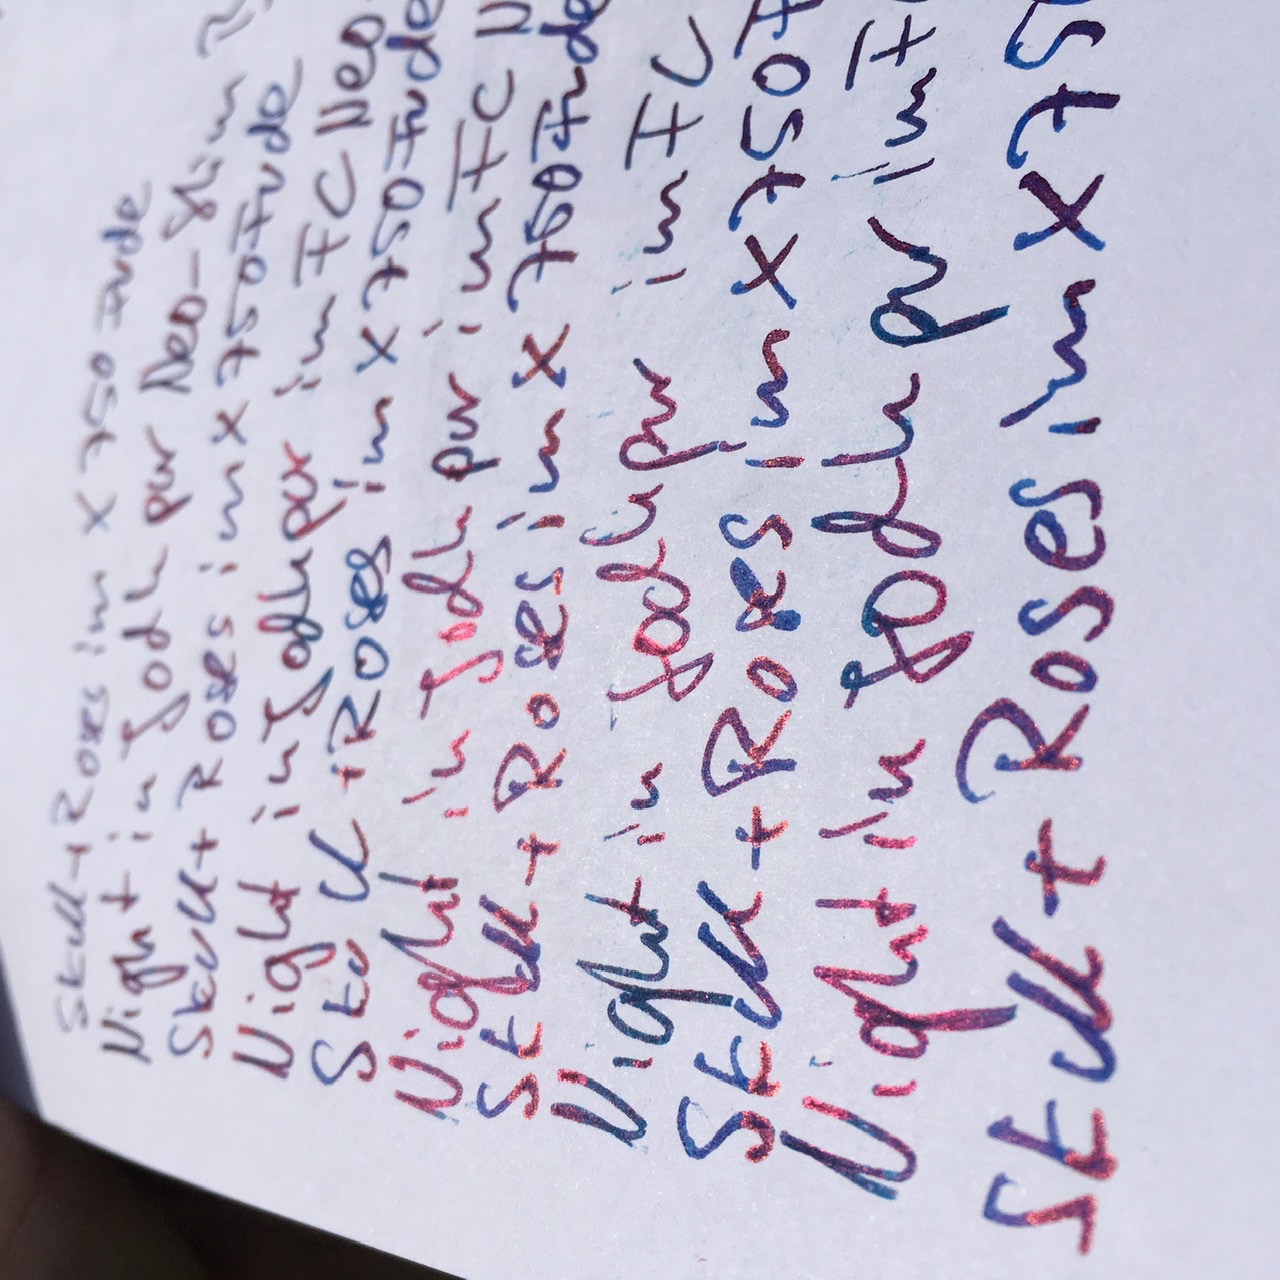 Skull + Roses in X 750 Fude
Night in Jodhpur Neo-Slim
Skull + Roses in X 750 Fude
Night in Jodhpur in FC Neo
Skull + Roses in X 750 Fude
Night in Jodhpur in FC N
Skull + Roses in X 750 Fude
Night in Jodhpur in FC
Skull + Roses in X 750 F
Night in Jodhpur in F
Skull + Roses in X 75